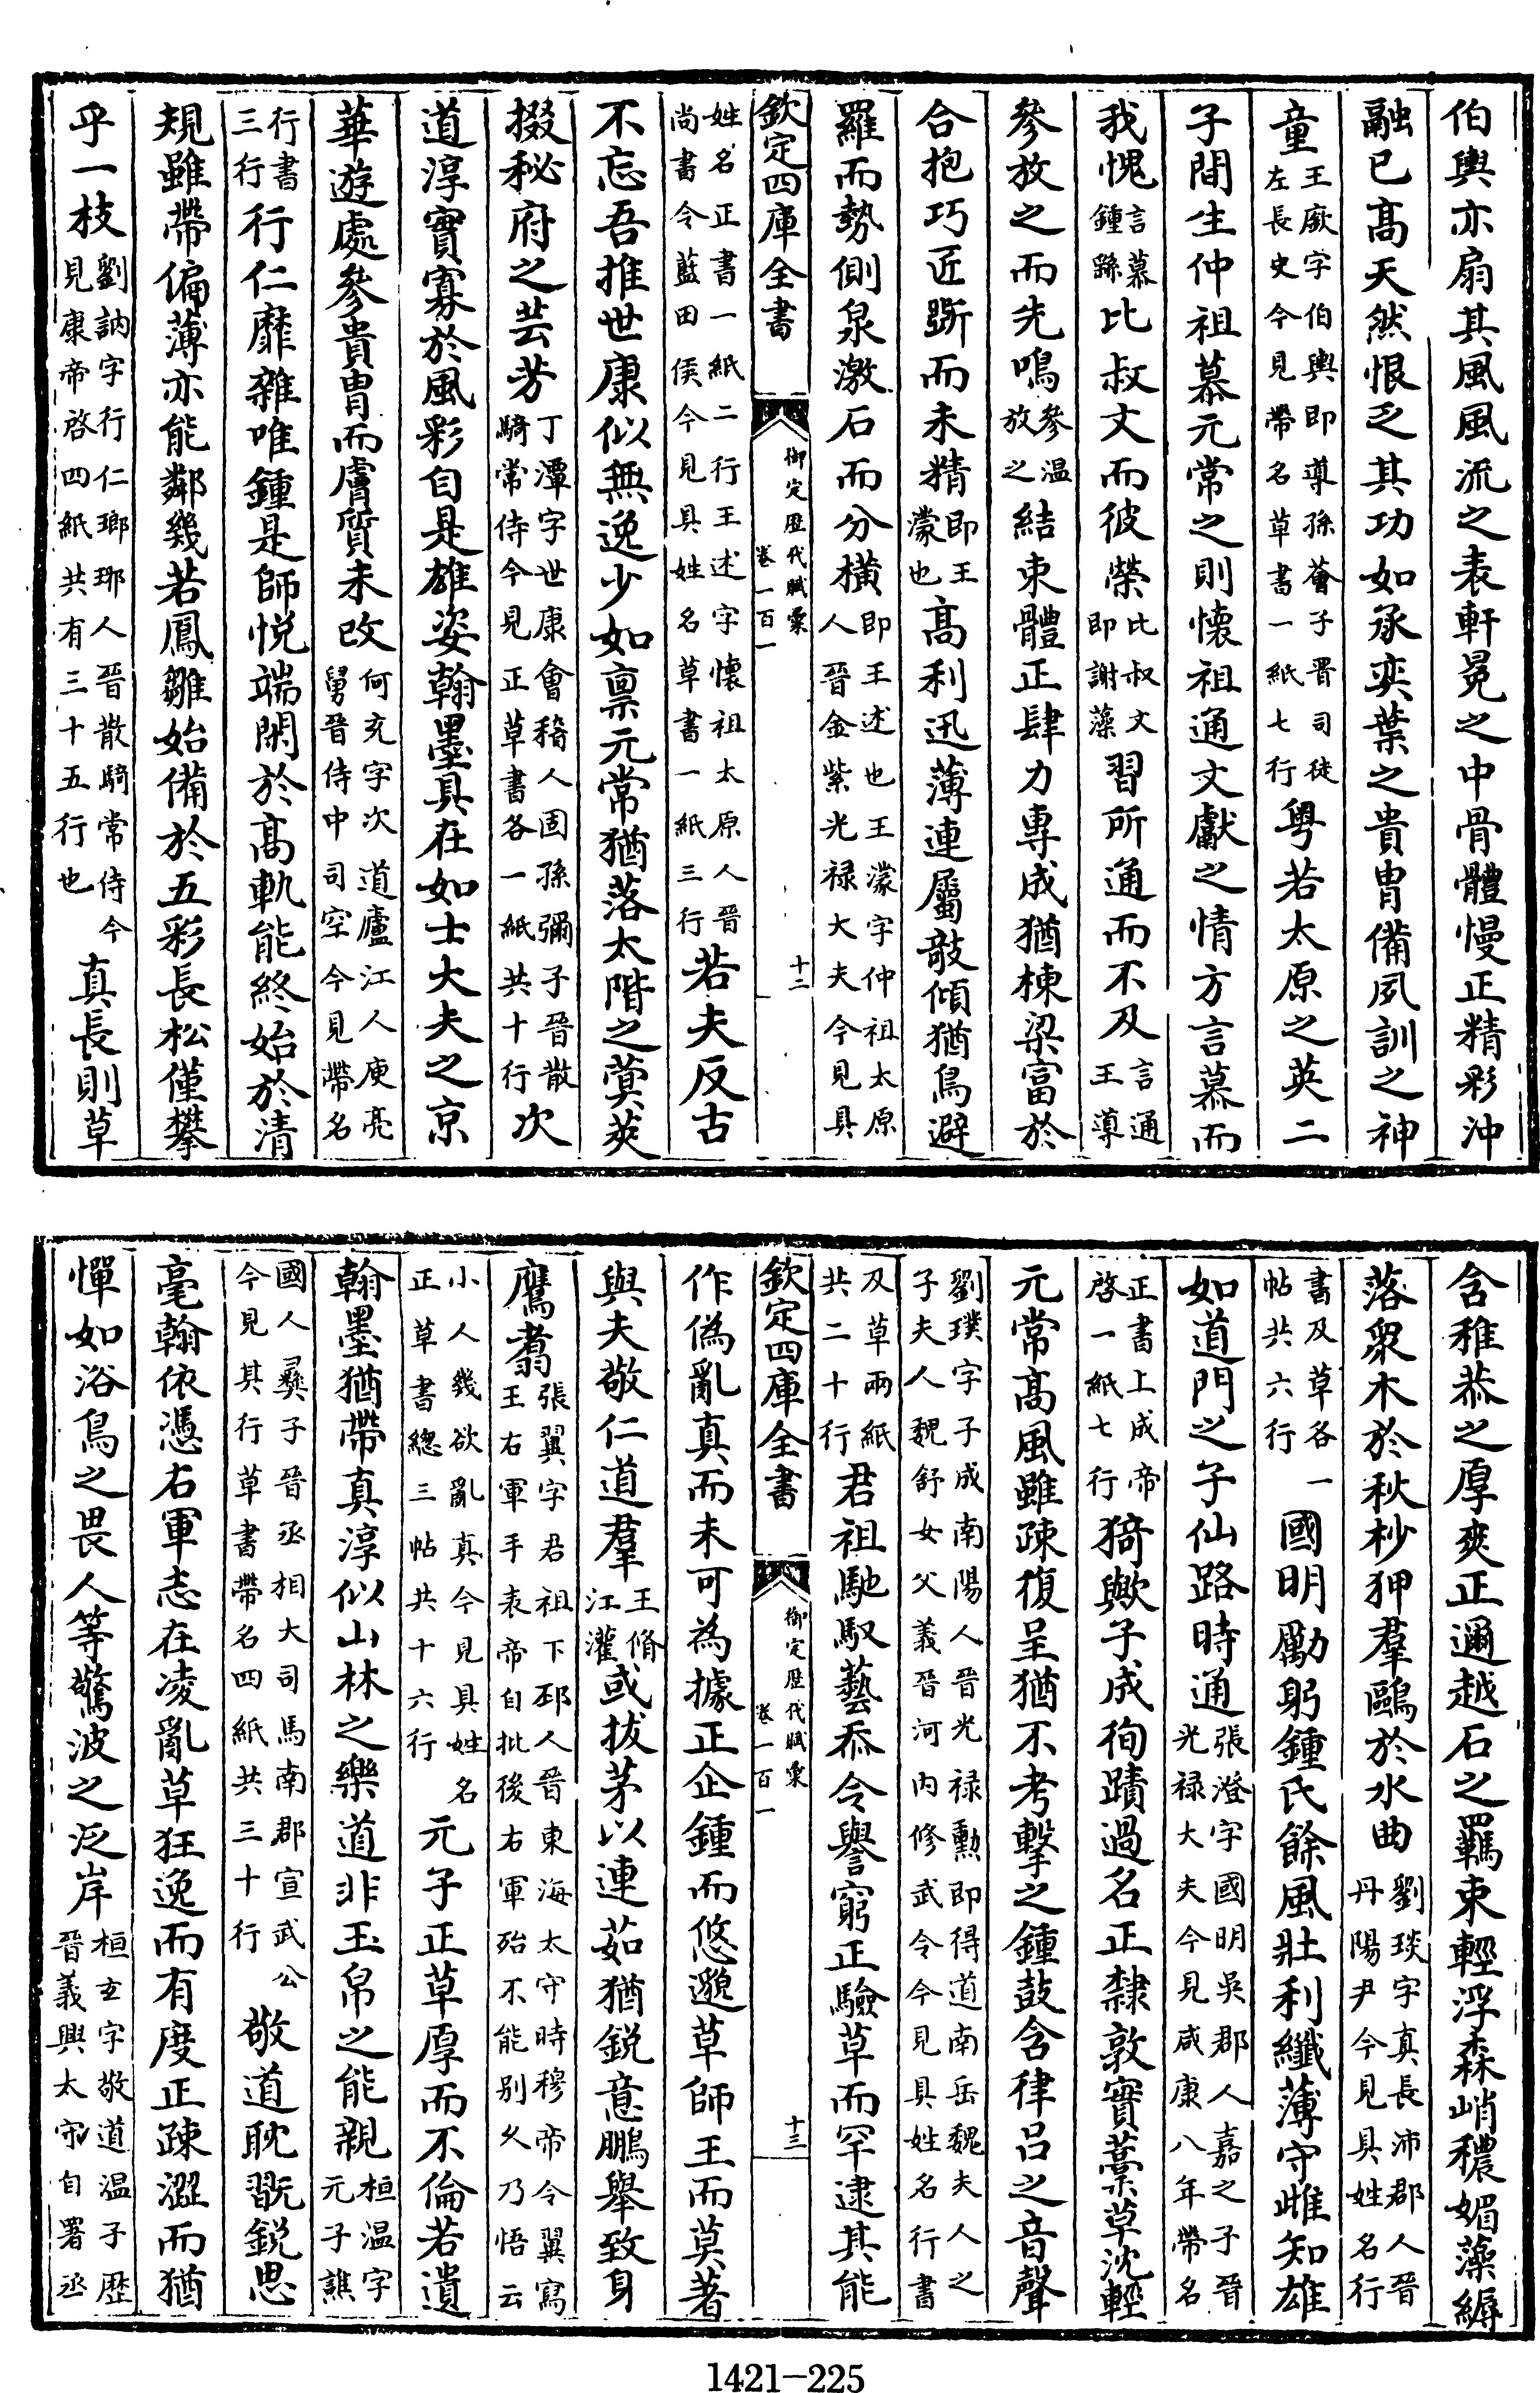 伯輿亦扇其風風流之表軒冕之中骨體慢正精彩沖
融已髙天然恨乏其功如承奕葉之貴胄備夙訓之神
童王廞字伯輿即導孫薈子晋司徒左長史今見帶名草書一紙七行粤若太原之英二
子間生仲祖慕元常之則懷祖通文獻之情方言慕而
我愧言慕鍾繇比叔文而彼榮比叔文即謝藻習所通而不及言通王導
參放之而先鳴參温放之結束體正肆力專成猶棟梁富於
合抱巧匠斲而未精即王濛也髙利迅薄連屬敧傾猶鳥避
羅而勢側泉激石而分横即王述也王濛字仲祖太原人晉金紫光禄大夫今見具
欽定四庫全書
御定歷代賦彙
卷一百一
十二
姓名正書一紙二行王述字懷祖太原人晉尚書令藍田侯今見具姓名草書一紙三行若夫反古
不忘吾推世康似無逸少如禀元常猶落太階之蓂莢
掇秘府之芸芳丁潭字世康會稽人固孫彌子晉散騎常侍今見正草書各一紙共十行次
道淳實寡於風彩自是雄姿翰墨具在如士大夫之京
華遊處參貴胄而膚質未改何充字次道廬江人庾亮舅晉侍中司空今見帶名
行書三行行仁靡雜唯鍾是師悦端閑於髙軌能終始於清
規雖帶偏薄亦能鄰幾若鳳雛始備於五彩長松僅攀
乎一枝劉訥字行仁瑯琊人晉散騎常侍今見康帝啓四紙共有三十五行也真長則草
含稚恭之厚爽正邇越石之羈束輕浮森峭穠媚藻縟
落衆木於秋杪狎羣鷗於水曲劉琰字真長沛郡人晉丹陽尹今見具姓名行
書及草各一帖共六行國明勵躬鍾氏餘風壯利纖薄守雌知雄
如道門之子仙路時通張澄字國明吳郡人嘉之子晉光禄大夫今見咸康八年帶名
正書上成帝啓一紙七行猗歟子成徇蹟過名正隸敦實藁草沈輕
元常髙風雖疎復呈猶不考擊之鍾鼓含律吕之音聲
劉璞字子成南陽人晉光禄勲即得道南岳魏夫人之子夫人魏舒女父義晉河内修武令今見具姓名行書
及草兩紙共二十行君祖馳馭藝忝令譽窮正驗草而罕逮其能
欽定四庫全書
御定歷代賦彙
卷一百一
十三
作偽亂真而未可為據正企鍾而悠邈草師王而莫著
與夫敬仁道羣王脩江灌或拔茅以連茹猶鋭意鵬舉致身
鷹翥張翼字君祖下邳人晉東海太守時穆帝令翼寫王右軍手表帝自批後右軍殆不能别久乃悟云
小人幾欲亂真今見具姓名正草書總三帖共十六行元子正草厚而不倫若遺
翰墨猶帶真淳似山林之樂道非玉帛之能親桓温字元子譙
國人彞子晉丞相大司馬南郡宣武公今見其行草書帶名四紙共三十行敬道耽翫鋭思
毫翰依憑右軍志在凌亂草狂逸而有度正疎澀而猶
憚如浴鳥之畏人等驚波之泛岸桓玄字敬道温子歴晉義興太守自署丞
1421-225